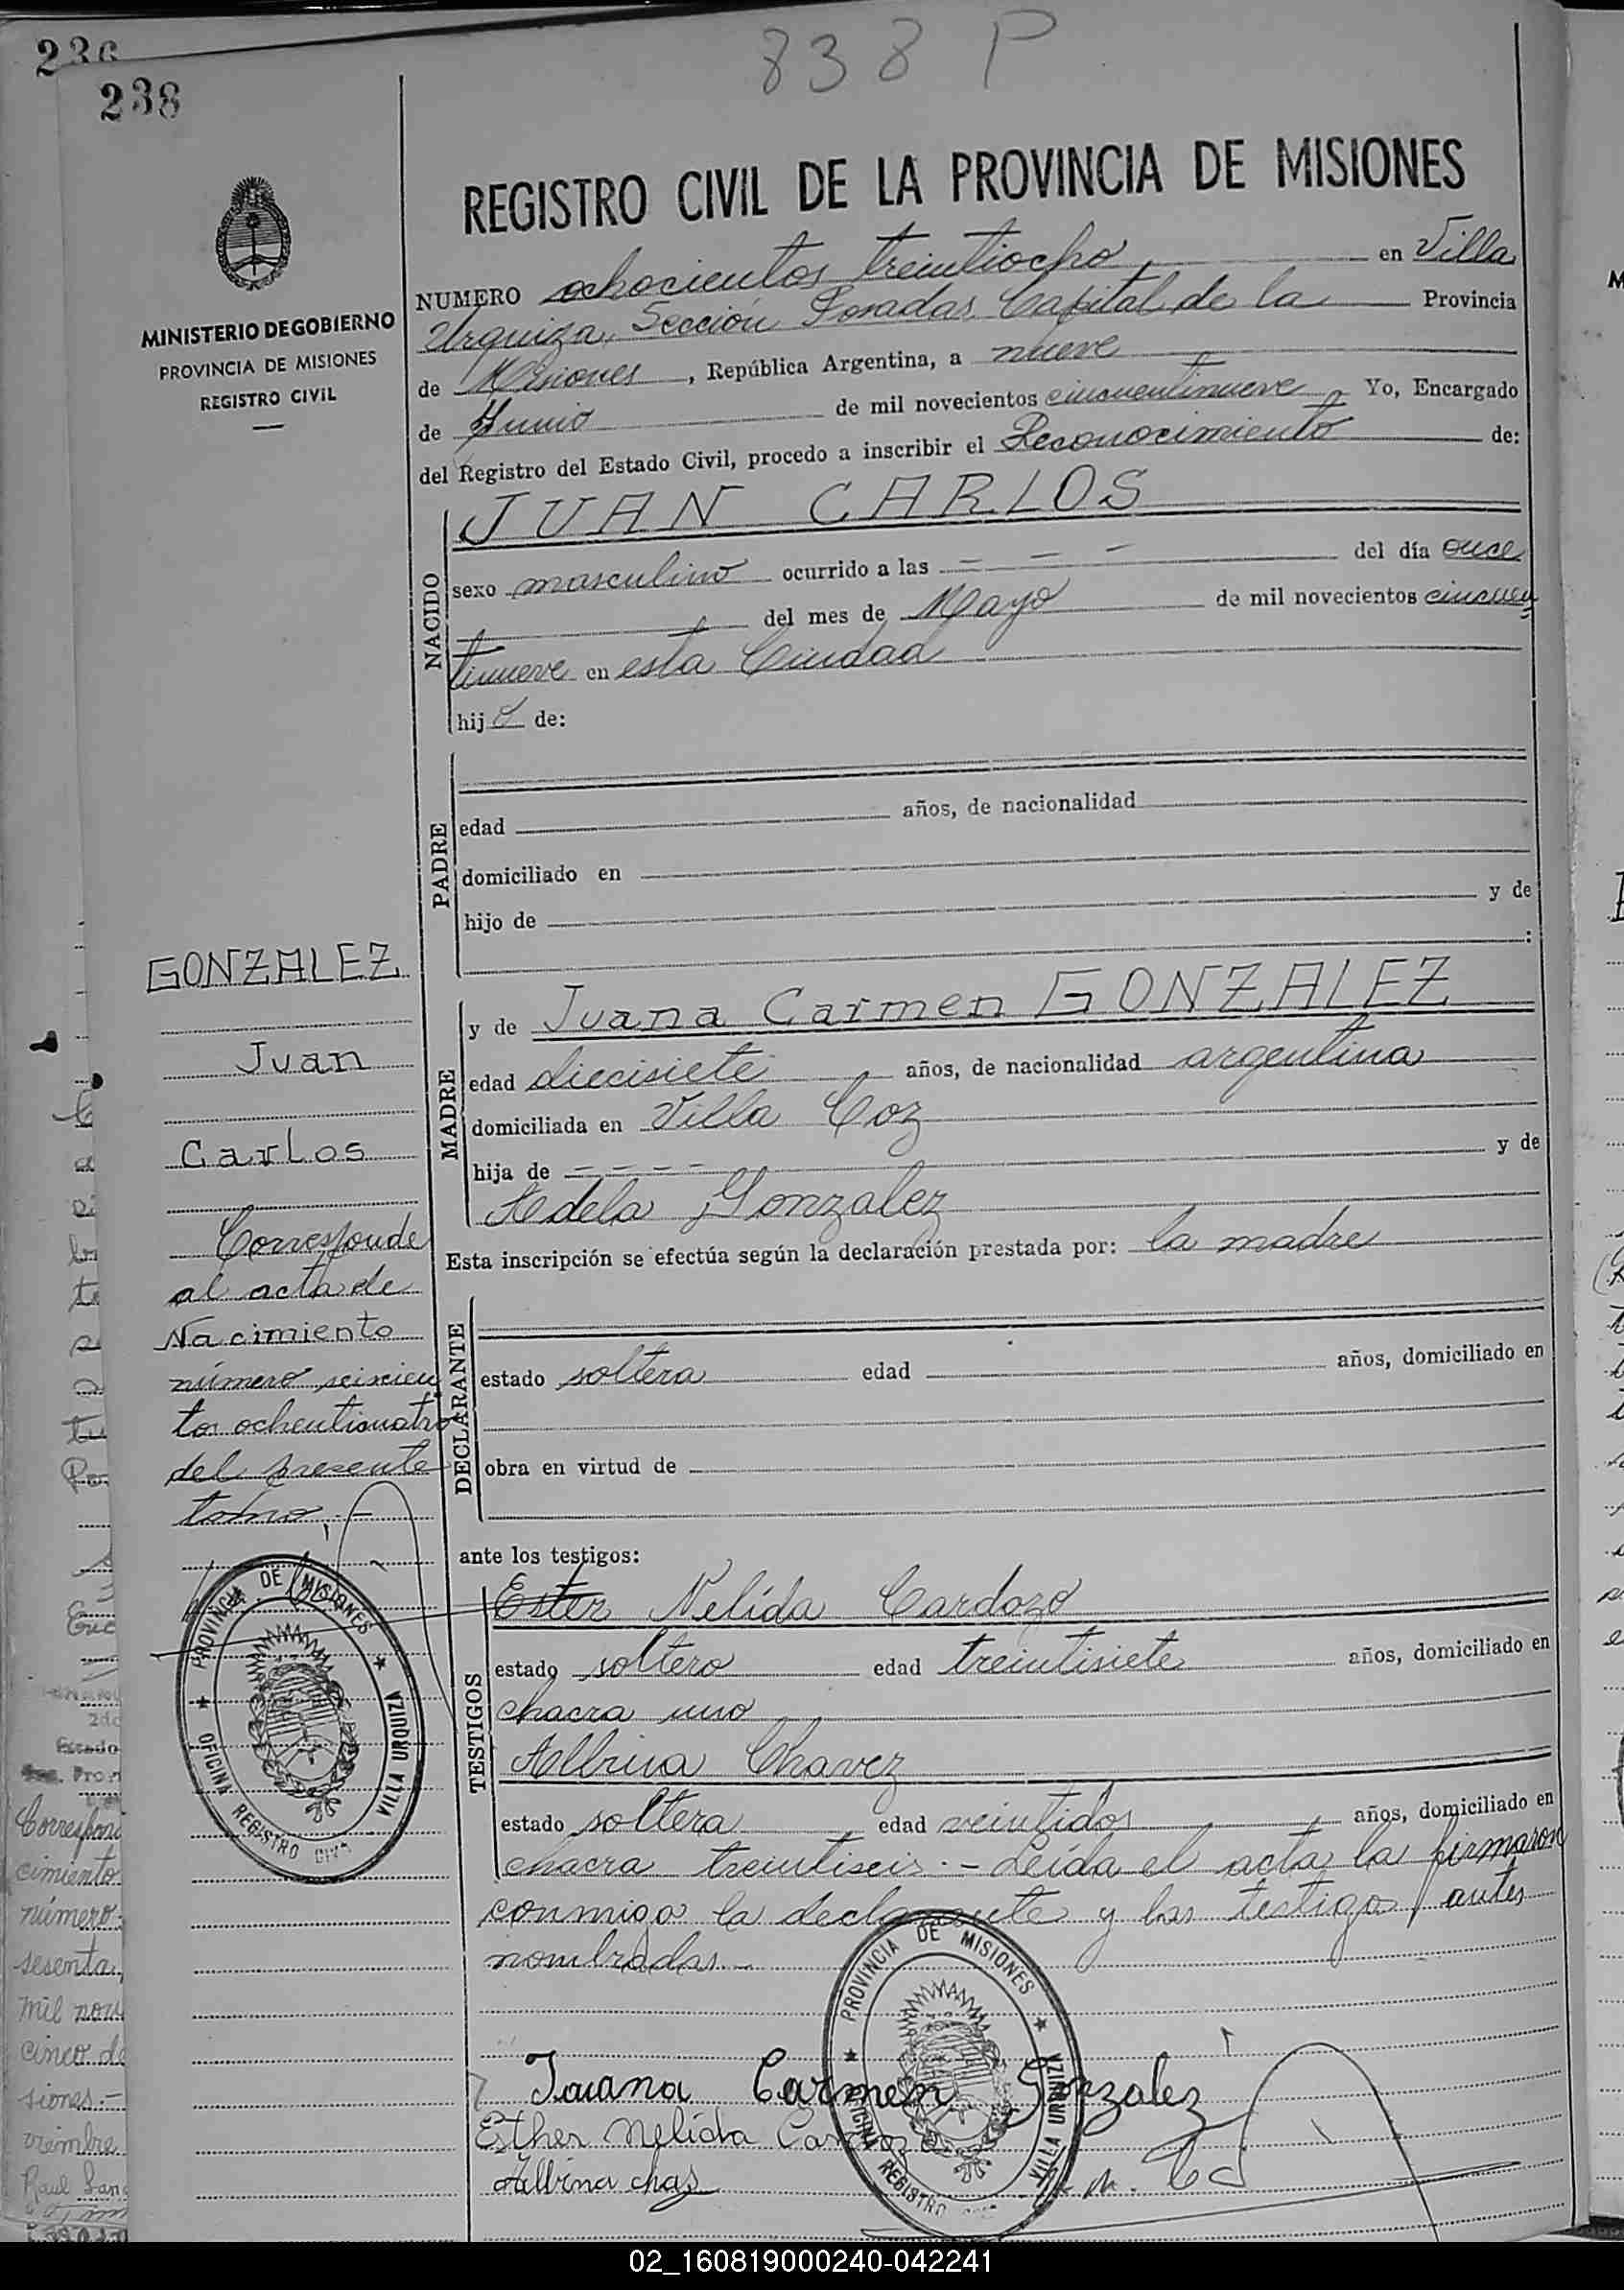 838 P
236
238
REGISTRO CIVIL DE LA PROVINCIA DE MISIONES
MINISTERIO DE GOBIERNO
PROVINCIA DE MISIONES
REGISTRO CIVIL
NUMERO ochocientos treintiocho en Villa
Urquiza, Sección Posadas Capital de la Provincia
de Misiones, República Argentina, a nueve
de Junio de mil novecientos cincuentinueve Yo, Encargado
del Registro del Estado Civil, procedo a inscribir el Reconocimiento de:
NACIDO
JUAN CARLOS
sexo masculino ocurrido a las – – – del día once
del mes de Mayo de mil novecientos cincuen
tinueve en esta Ciudad
hijo de:
PADRE
edad años, de nacionalidad
domiciliado en
hijo de y de
:
GONZALEZ
Juan
Carlos
Corresponde
al acta de
Nacimiento
número seiscien
tos ochenticuatro
del presente
tomo.–
MADRE
y de Juana Carmen GONZALEZ
edad diecisiete años, de nacionalidad argentina
domiciliada en Villa Coz
hija de – – – – y de
Adela Gonzalez
Esta inscripción se efectúa según la declaración prestada por: la madre
DECLARANTE
estado soltera edad años, domiciliado en
obra en virtud de
ante los testigos:
TESTIGOS
Ester Nelída Cardozo
estado soltero edad treintisiete años, domiciliado en
chacra uno
Albina Chavez
estado soltera edad veintidos años, domiciliado en
chacra treintiseis.– Leída el acta la firmaron
conmigo la declarante y las testigos antes
nombradas.–
PROVINCIA DE MISIONES
OFICINA REGISTRO CIVIL
VILLA URQUIZA
PROVINCIA DE MISIONES
OFICINA REGISTRO
VILLA URQUIZA
Juana Carmen Gonzalez
Esther Nelida Cardozo
Albina chaz
Correspond
cimiento
número:
sesenta
mil nov
cinco de
siones.–
viembre
Raul
02_160819000240-042241